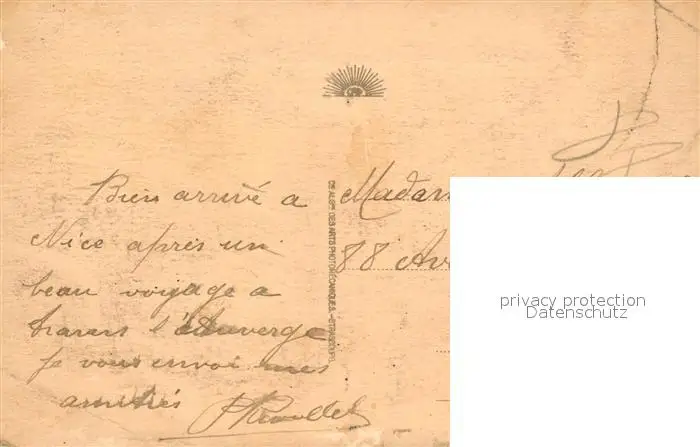 Bien arrivé a
Nice après un
beau voyage a
travers l'Auverge
Je vous envoi mes
amitiés
Cie ALSNE DES ARTS PHOTOMÉCANIQUES. - STRASBOURG
Madam
88 Av
privacy protection
Datenschutz